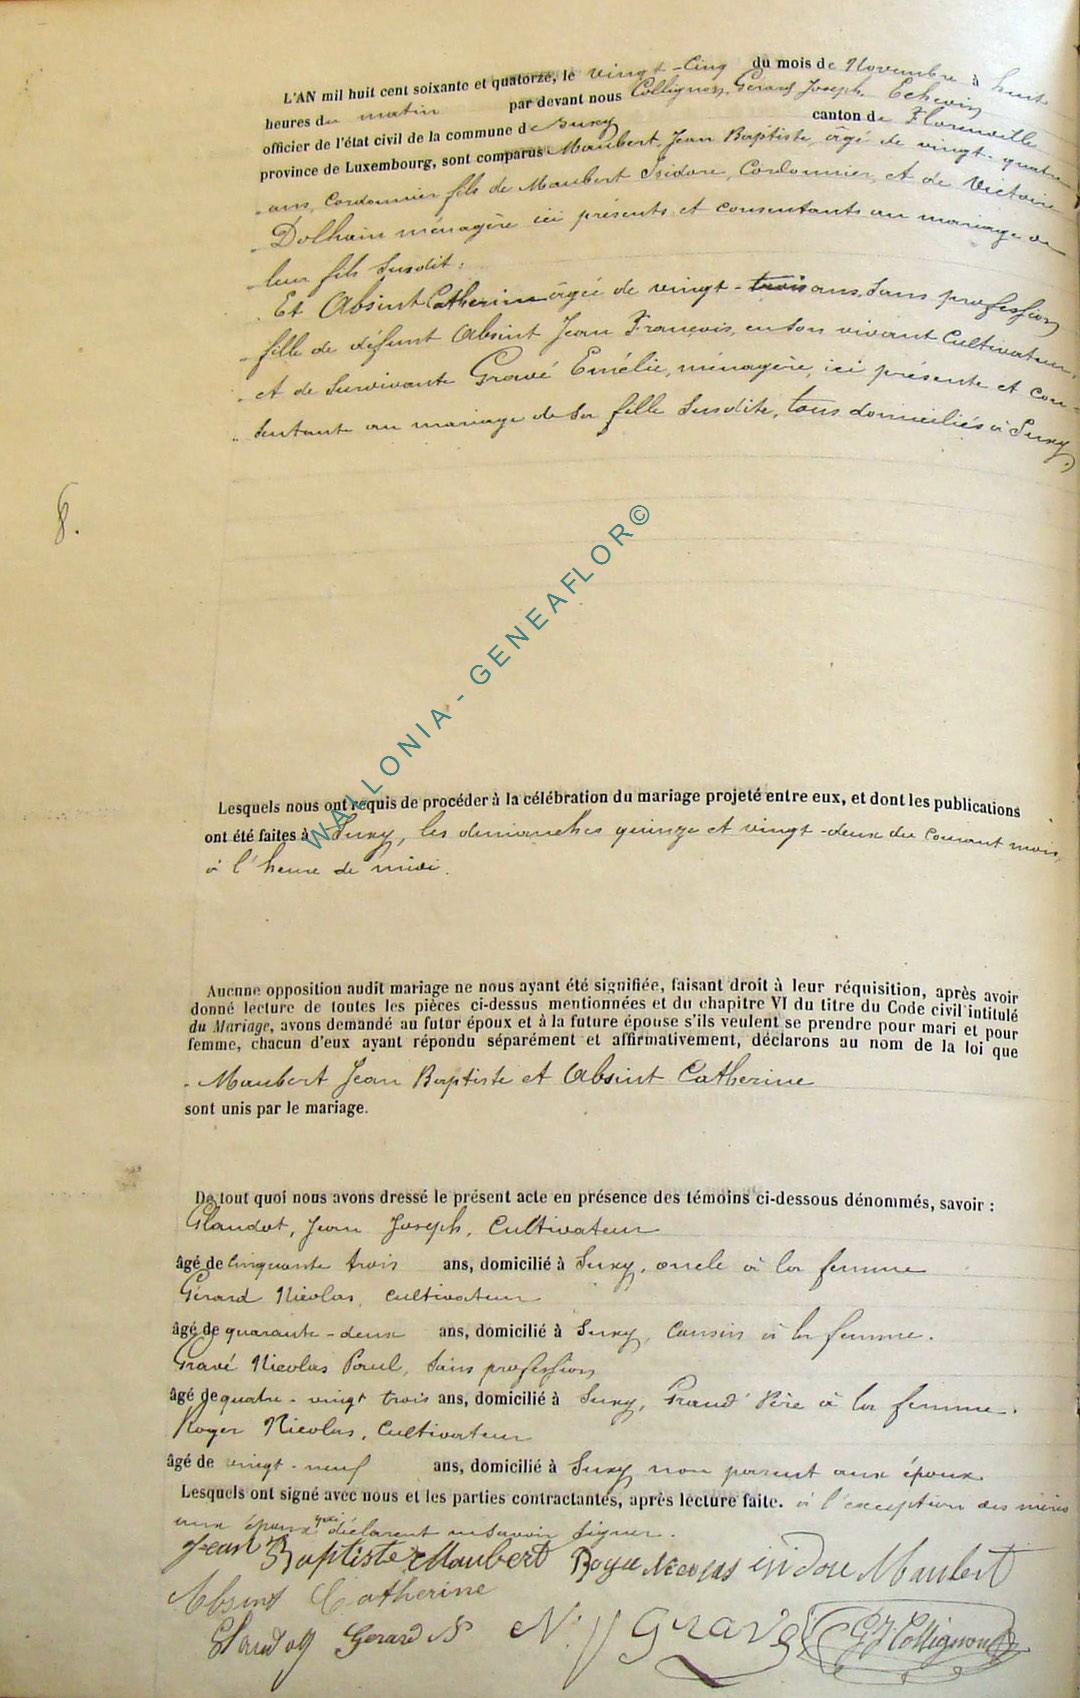 L'AN mil huit cent soixante et quatorze, le vingt-Cinq du mois de Novembre à huit
heures du matin par devant nous Collignon, Gérard Joseph Echevin
officier de l'état civil de la commune de Suxy canton de Florenville
province de Luxembourg, sont comparus Maubert Jean Baptiste, âgé de vingt-quatre
ans, Cordonnier fils de Maubert Isidore, Cordonnier, et de Victoire
Dolhain ménagère ici présents et consentants au mariage de
leur fils susdit :
Et Absint Catherine âgée de vingt-trois ans, Sans profession
fille de défunt Absint Jean François, en son vivant Cultivateur,
et de survivante Gravé Emélie, ménagère, ici présente et con-
sentante au mariage de sa fille susdite, tous domiciliés à Suxy.
8.
WALLONIA - GENEAFLOR©
Lesquels nous ont requis de procéder à la célébration du mariage projeté entre eux, et dont les publications
ont été faites à Suxy, les dimanches quinze et vingt-deux du courant mois,
à l'heure de midi.
Aucune opposition audit mariage ne nous ayant été signifiée, faisant droit à leur réquisition, après avoir
donné lecture de toutes les pièces ci-dessus mentionnées et du chapitre VI du titre du Code civil intitulé
du Mariage, avons demandé au futur époux et à la future épouse s'ils veulent se prendre pour mari et pour
femme, chacun d'eux ayant répondu séparément et affirmativement, déclarons au nom de la loi que
Maubert Jean Baptiste et Absint Catherine
sont unis par le mariage.
De tout quoi nous avons dressé le présent acte en présence des témoins ci-dessous dénommés, savoir :
Glaudot, Jean Joseph, Cultivateur
âgé de Cinquante trois ans, domicilié à Suxy, oncle à la femme
Gérard Nicolas, cultivateur
âgé de quarante-deux ans, domicilié à Suxy, Cousin à la femme.
Gravé Nicolas Paul, Sans profession
âgé de quatre-vingt trois ans, domicilié à Suxy, Grand Père à la femme.
Roger Nicolas, Cultivateur
âgé de vingt-neuf ans, domicilié à Suxy non parent aux époux.
Lesquels ont signé avec nous et les parties contractantes, après lecture faite. à l'exception des mères
aux époux qui déclarent ne savoir signer.
Jean Baptiste Maubert Roger Nicolas isidore Maubert
Absint Catherine
Glaudot Gerard N N. p Gravé G J Collignon